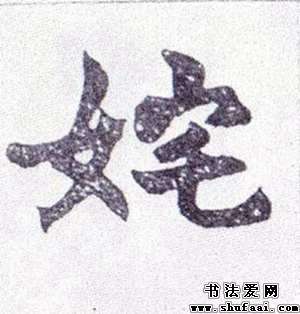 姹
书法爱网
www.shufaai.com